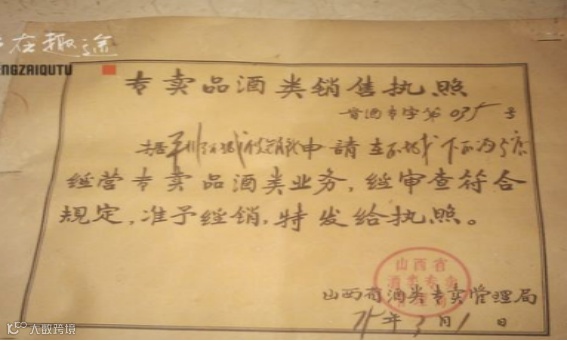 在趣途
NGZAIQUTU
专卖品酒类销售执照
晋酒专字第035号
据 申請
经营专卖品酒类业务，经审查符合
规定，准予经销，特发给执照。
山西省
酒类专卖
山西省酒类专卖管理局
75年3月1日
大数跨境